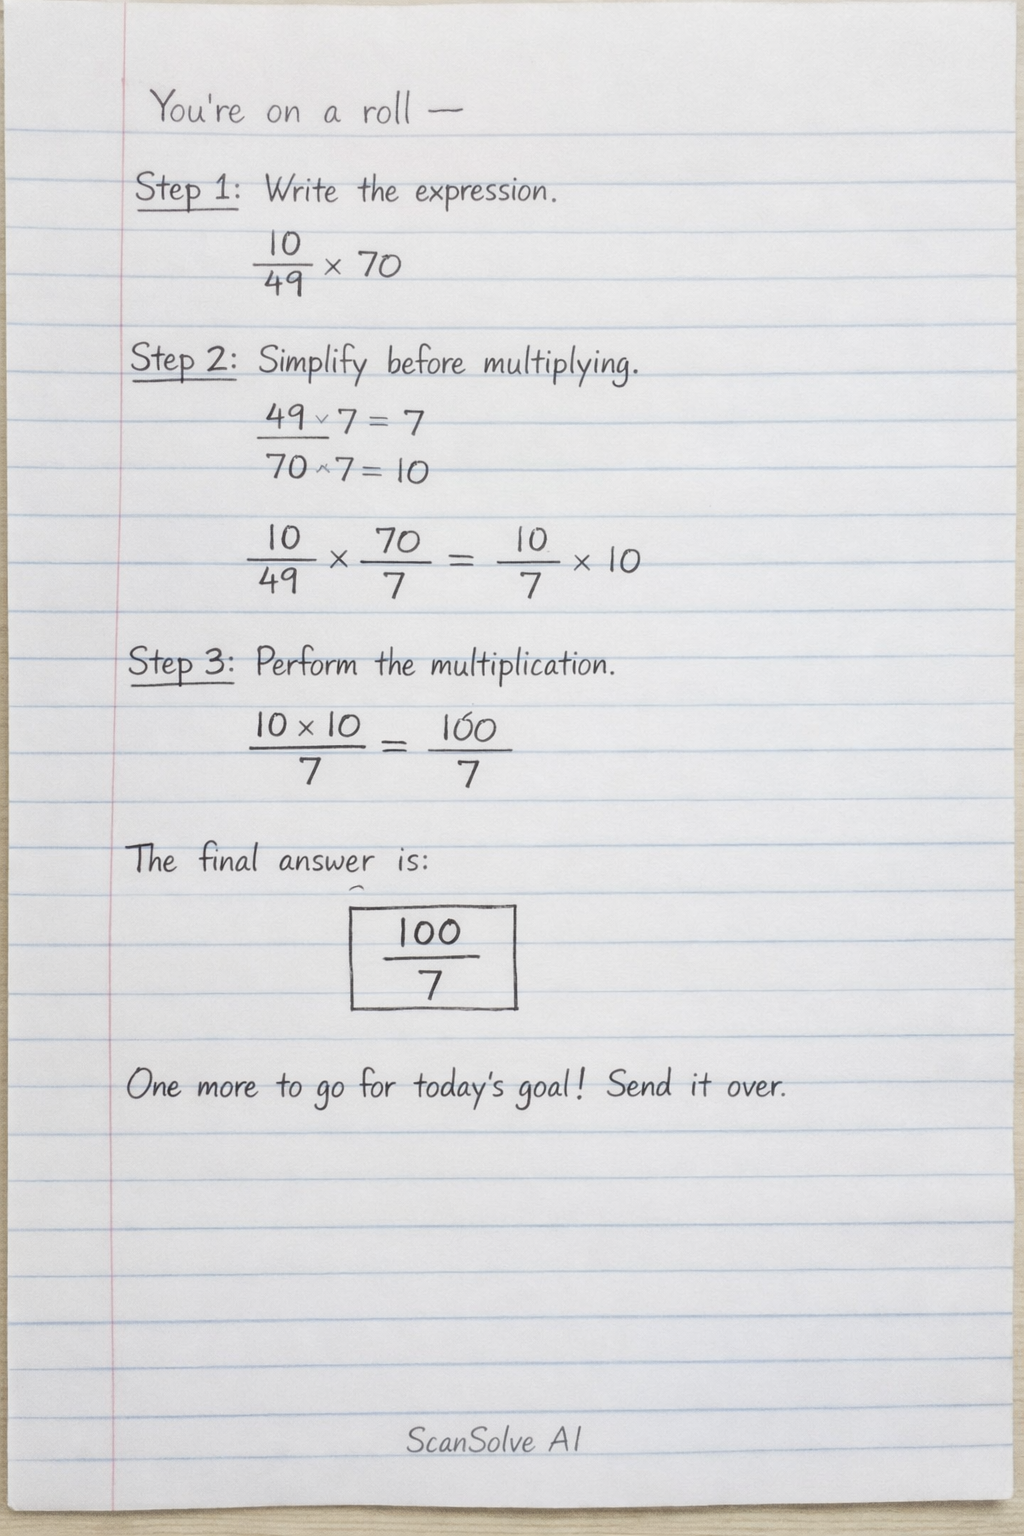 You're on a roll —
Step 1: Write the expression.
10/49 × 70
Step 2: Simplify before multiplying.
49 ÷ 7 = 7
70 ÷ 7 = 10
10/49 × 70/7 = 10/7 × 10
Step 3: Perform the multiplication.
10 × 10/7 = 100/7
The final answer is:
100/7
One more to go for today's goal! Send it over.
ScanSolve AI